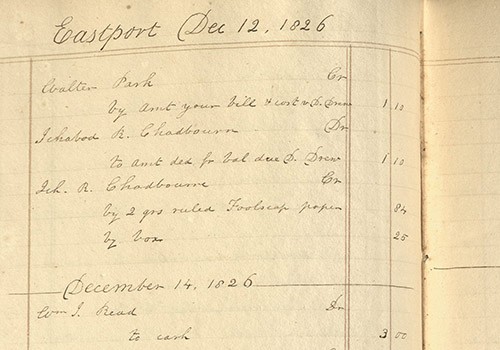 Eastport Dec 12, 1826
Walter Park Cr
by Amt your bill & cost v D. Drew 1 10
Ichabod R. Chadbourn Dr
to amt ded fr bal due D. Drew 1 10
Ich. R. Chadbourne Cr
by 2 qrs ruled Foolscap paper 84
by box 25
December 14, 1826
Wm J. Read Dr
to cash 3 00